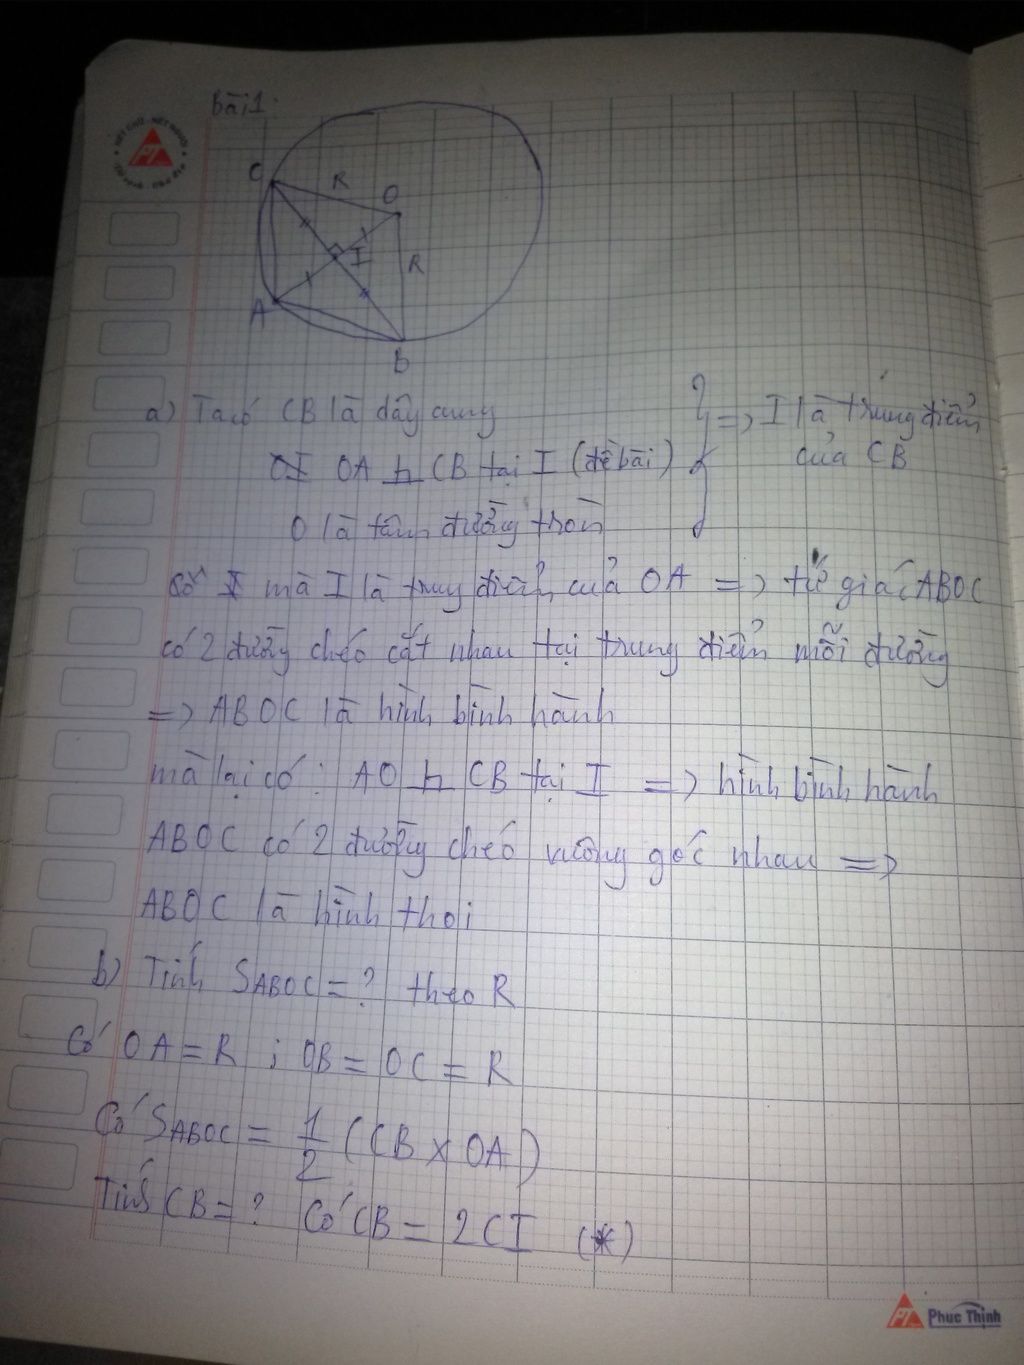 Bài 1:
C R O
I R
A
B
a) Ta có CB là dây cung
OA ⊥ CB tại I (đề bài) => I là trung điểm của CB
O là tâm đường tròn
mà I là trung điểm của OA => tứ giác ABOC
có 2 đường chéo cắt nhau tại trung điểm mỗi đường
=> ABOC là hình bình hành
mà lại có : AO ⊥ CB tại I => hình bình hành
ABOC có 2 đường chéo vuông góc nhau =>
ABOC là hình thoi
b) Tính SABOC = ? theo R
Có OA = R ; OB = OC = R
Có SABOC = 1/2 (CB x OA)
Tính CB = ? Có CB = 2CI (*)
PT Phuc Thinh